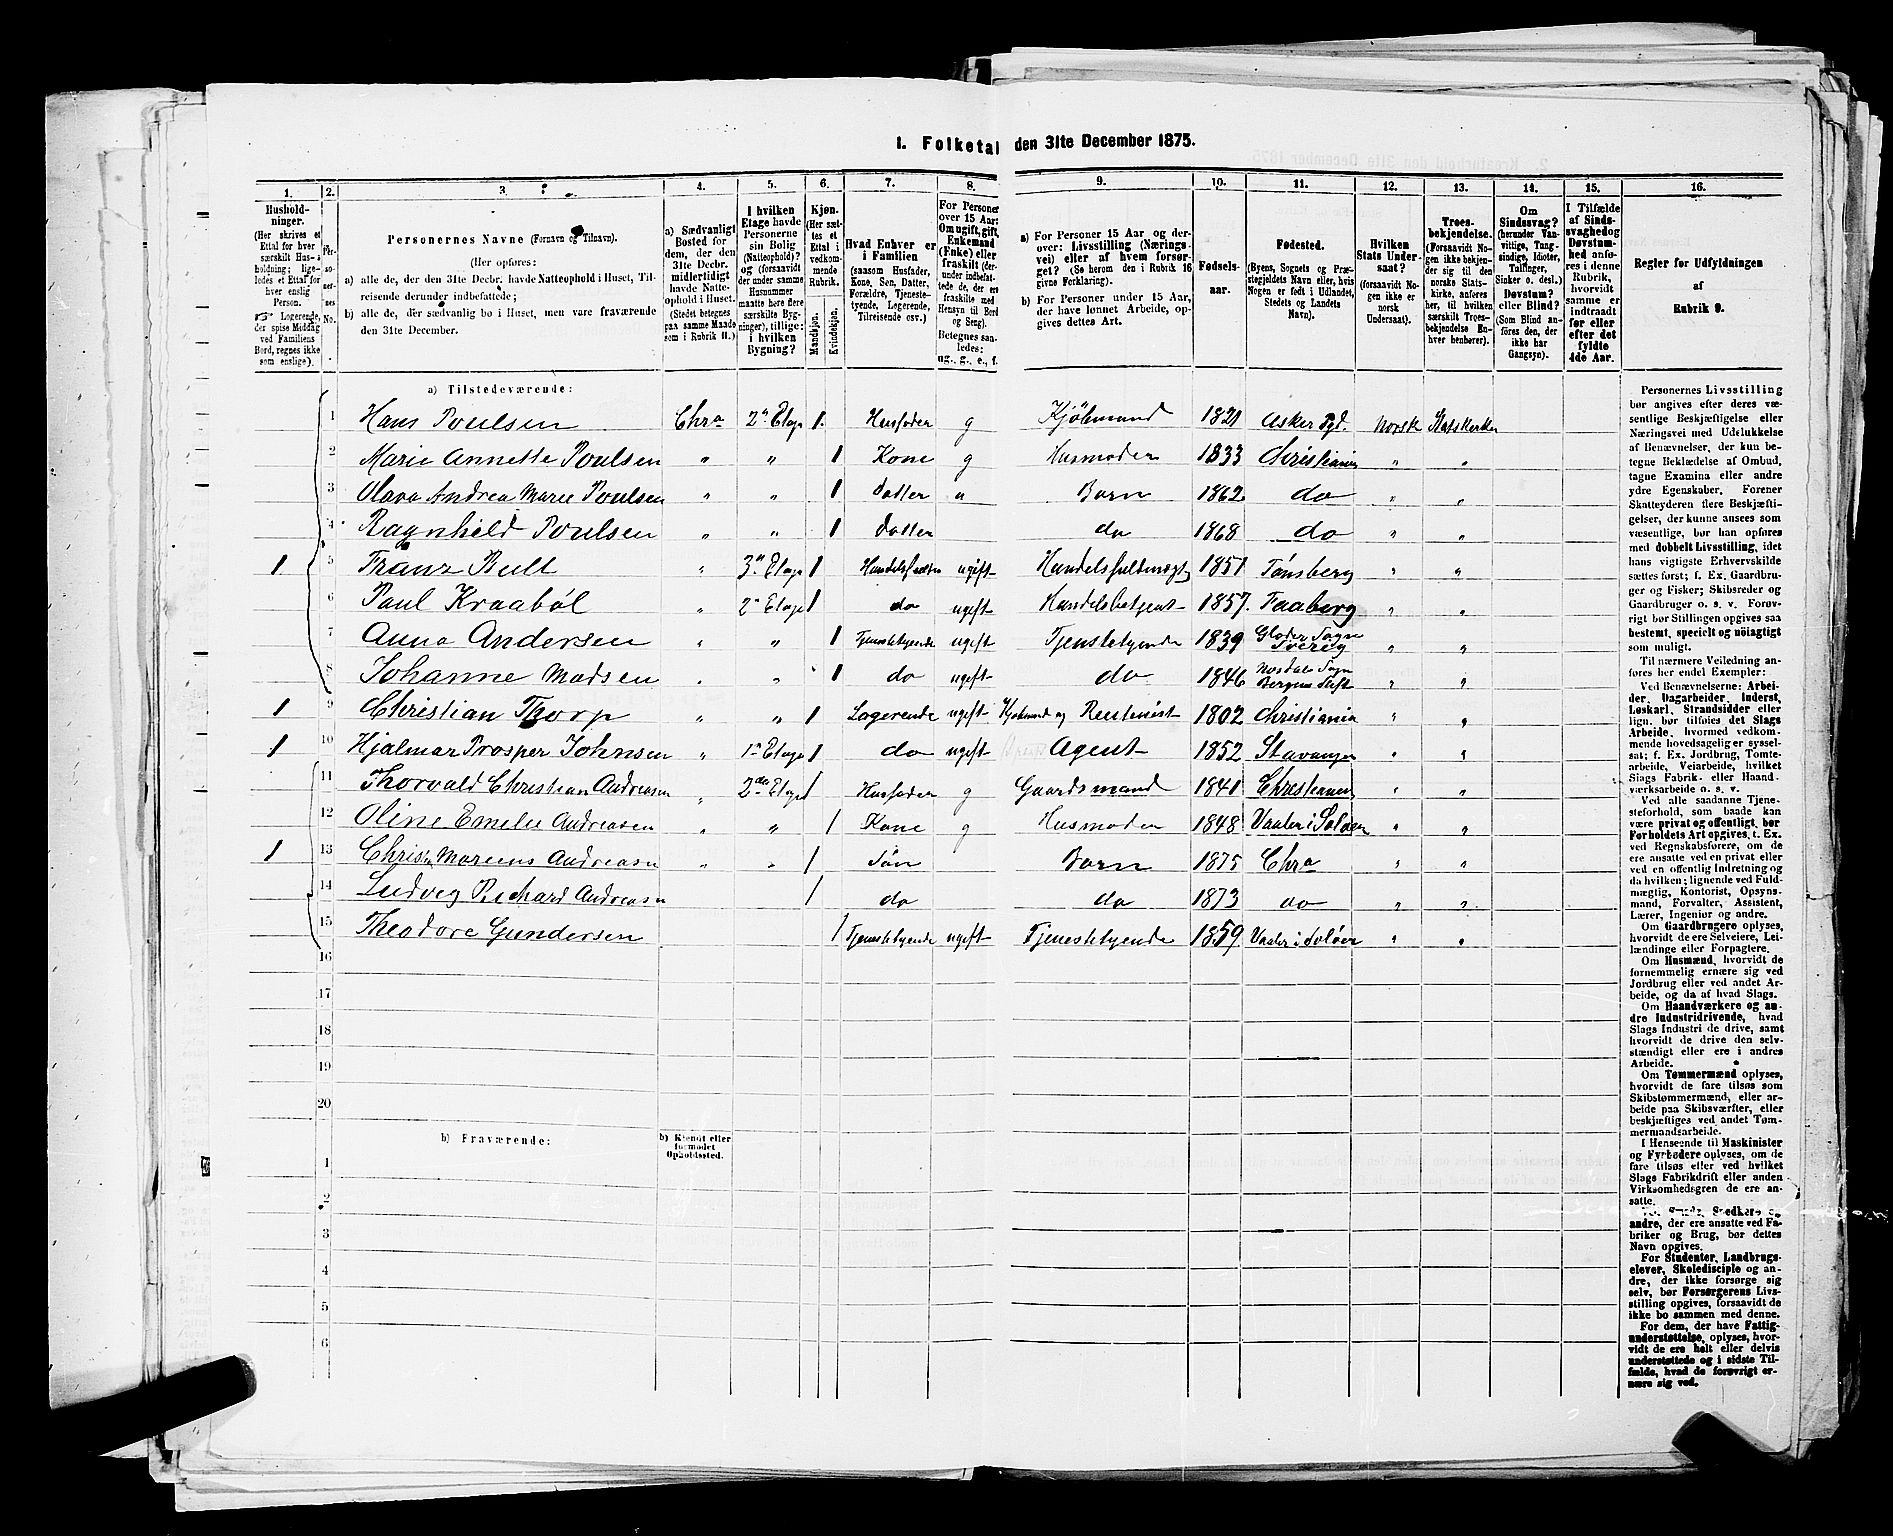 1. Folketal den 31te December 1875.
1. 2. 3. 4. 5. 6. 7. 8. 9. 10. 11. 12. 13. 14. 15. 16.
Husholdninger.
(Her skrives et Ettal for hver særskilt Husholdning; ligeledes et Ettal for hver enslig Person.
☞ Logerende, der spise Middag ved Familiens Bord, regnes ikke som enslige).
Personernes No.
Personernes Navne (Fornavn og Tilnavn).
(Her opføres:
a) alle de, der den 31te Decbr. havde Natteophold i Huset, Tilreisende derunder indbefattede;
b) alle de, der sædvanlig bo i Huset, men vare fraværende den 31te December.
a) Sædvanligt Bosted for dem, der den 31te Decbr. midlertidigt havde Natteophold i Huset.
(Stedet betegnes paa samme Maade som i Rubrik 11.)
I hvilken Etage havde Personerne sin Bolig (Natteophold)? og (forsaavidt der under samme Husnummer maatte høre flere særskilte Bygninger), tillige: i hvilken Bygning?
Kjøn.
(Her sættes et Ettal i vedkommende Rubrik.
Mandskjøn.
Kvindekjøn.
Hvad Enhver er i Familien
(saasom Husfader, Kone, Søn, Datter, Forældre, Tjenestetyende, Logerende, Tilreisende osv.)
For Personer over 15 Aar: Om ugift, gift, Enkemand (Enke) eller fraskilt (derunder indbefattede de, der ere fraskilte med Hensyn til Bord og Seng).
Betegnes saaledes:
ug., g., e., f.
a) For Personer 15 Aar og derover: Livsstilling (Næringsvei) eller af hvem forsørget? (Se herom den i Rubrik 16 givne Forklaring).
b) For Personer under 15 Aar, der have lønnet Arbeide, opgives dettes Art.
Fødselsaar.
Fødested.
(Byens, Sognets og Præstegjeldets Navn eller, hvis Nogen er født i Udlandet, Stedets og Landets Navn).
Hvilken Stats Undersaat?
(forsaavidt Nogen ikke er norsk Undersaat).
Troesbekjendelse.
(Forsaavidt Nogen ikke bekjender sig til den norske Statskirke, anføres her, til hvilken særskilt Troesbekjendelse Enhver henhører).
Om Sindssvag? (herunder Vanvittige, Tungsindige, Idioter, Tullinger, Sinker o. desl.) Døvstum? eller Blind? (Som Blind anføres den, der ikke har Gangsyn).
I Tilfælde af Sindssvaghed og Døvstumhed anføres i denne Rubrik, hvorvidt samme er indtraadt før eller efter det fyldte 4de Aar.
Regler for Udfyldningen af Rubrik 9.
a) Tilstedeværende:
1 Hans Poulsen Chra 2n Etage 1. Husfader g Kjöbmand 1821 Asker Pgd. Norsk Statskirken
2 Marie Annette Poulsen " " 1 Kone g Husmoder 1833 Christiania " "
3 Olava Andrea Marie Poulsen " " 1 Datter " Barn 1862 do " "
4 Ragnhild Poulsen " " 1 Datter do 1868 do " "
1 5 Franz Bull " 3n Etage 1 ugift Handelsfuldmægt 1851 Tønsberg " "
6 Paul Kraaböl " 2n Etage 1 do ugift Handelsbetjent 1857. Faaberg " "
7 Anna Andersen " " 1 Tjenestetyende ugift Tjenestetyende 1839 Sogn Sverig " "
8 Johanne Madsen " " 1 do ugift do 1846 Sogn Bergens Stift " "
1 9 Christian Thorp " " 1 Logerende ugift Kjöbmand og Rentenist 1802 Christiania " "
1 10 Hjalmar Prosper Johnsen " 1n Etage 1 do ugift Agent 1852 Stavanger " "
11 Thorvald Christian Andreasen " 2den Etage 1 Husfader g Gaardsmand 1841 Christiania " "
12 Oline Emelie Andreasen " " 1 Kone g Husmoder 1848 Vaaler i Soløer " "
1 13 Andreasen " " 1 Søn Barn 1875 Chra " "
14 Ludvig Richard Andreasen 1 do do 1873 do " "
15 Theodore Gundersen 1 Tjenestetyende ugift Tjenestetyende 1859 Vaaler i Soløer " "
16
17
18
19
20
b) Fraværende:
b) Kjendt eller formodet Opholdssted.
1
2
3
4
5
6
Personernes Livsstilling bør angives efter deres væsentlige Beskjæftigelse eller Næringsvei med Udelukkelse af Benævnelser, der kun betegne Beklædelse af Ombud, tagne Examina eller andre ydre Egenskaber. Forener Skatteyderen flere Beskjæftigelser, der kunne ansees som væsentlige, bør han opføres med dobbelt Livsstilling, idet hans vigtigste Erhvervskilde sættes først; f. Ex. Gaardbruger og Fisker; Skibsreder og Gaardbruger o. s. v. Forøvrigt bør Stillingen opgives saa bestemt, specielt og nöiagtigt som muligt.
Til nærmere Veiledning anføres her endel Exempler:
Ved Benævnelserne: Arbeider, Dagarbeider, Inderst, Løskarl, Strandsidder eller lign. bør tilføies det Slags Arbeide, hvormed vedkommende hovedsagelig er sysselsat; f. Ex. Jordbrug, Tomtearbeide, Veiarbeide, hvilket Slags Fabrik- eller Haandværksarbeide o. s. v.
Ved alle saadanne Tjenesteforhold, som baade kan være privat og offentligt, bør Forholdets Art opgives, t. Ex. ved Regnskabsførere, om de ere ansatte ved en privat eller ved en offentlig Indretning og da hvilken; lignende ved Fuldmægtig, Kontorist, Opsynsmand, Forvalter, Assistent, Lærer, Ingeniør og andre.
Om Gaardbrugere oplyses, hvorvidt de ere Selveiere, Leilændinge eller Forpagtere.
Om Husmænd, hvorvidt de fornemmelig ernære sig ved Jordbrug eller ved andet Arbeide, og da af hvad Slags.
Om Haandværkere og andre Industridrivende, hvad Slags Industri de drive, samt hvorvidt de drive den selvstændigt eller ere i andres Arbeide.
Om Tømmermænd oplyses, hvorvidt de fare tilsøs som Skibstømmermænd, eller arbeide paa Skibsværfter, eller beskjæftiges ved andet Tømmermandsarbeide.
I Henseende til Maskinister og Fyrbødere oplyses, om de fare tilsøs eller ved hvilket Slags Fabrikdrift eller anden Virksomhedsgren de ere ansatte.
Smede, Snedkere og andre, der ere ansatte ved Fabriker og Brug, bør dettes Navn opgives.
For Studenter, Landbrugselever, Skoledisciple og andre, der ikke forsørge sig selv, bør Forsørgerens Livsstilling opgives, forsaavidt de ikke bo sammen med denne.
For dem, der have Fattigunderstøttelse, oplyses, hvorvidt de ere helt eller delvis understøttede og i sidste Tilfælde, hvad de forøvrigt ernære sig ved.